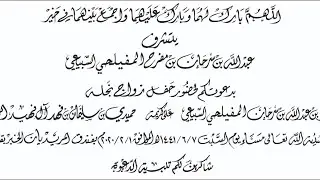 اللهم بارك لهما وبارك عليهما واجمع بينهما في خير
يتشرف
عبدالله بن سرحان بن مفرح المفيلحي السبيعي
بدعوتكم لحضور حفل زواج نجله
بن عبدالله بن سرحان المفيلحي السبيعي على كريمة حميدي بن سلطان بن فهد آل فهيد ال
الله تعالى مساء يوم السبت ١٤٤١/٦/٧هـ الموافق ٢٠٢٠/٢/١م بفندق
شاكرين لكم تلبية الدعوة